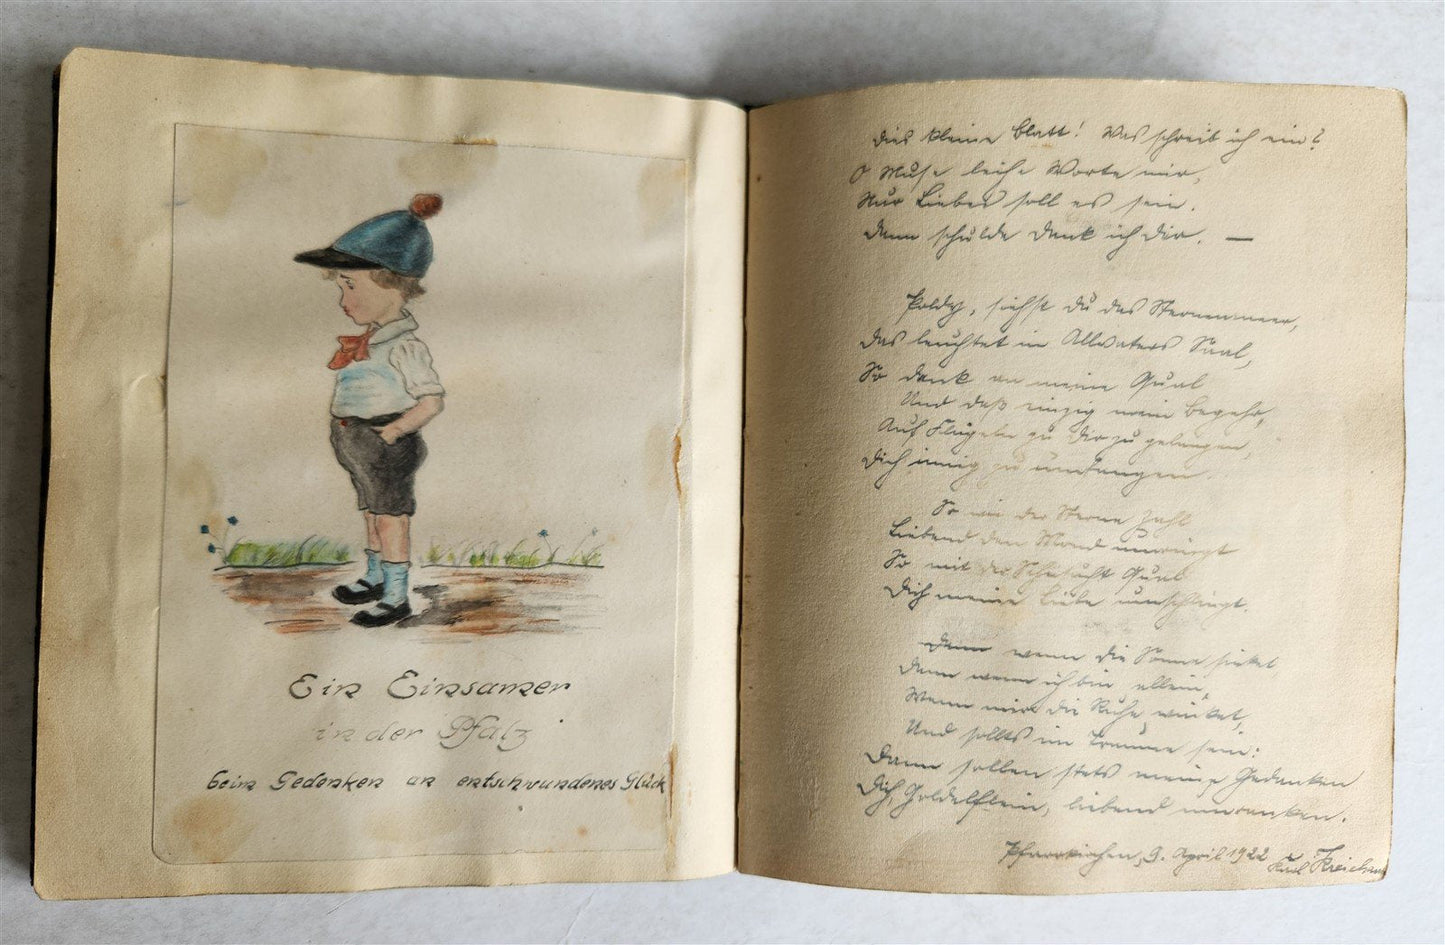 Ein Einsamer
in der Pfalz
beim Gedenken an entschwundenes Glück
Dies kleine Blatt! Was schreib ich ein?
O Muse leihe Worte mir,
Nur Liebes soll es sein.
Dann schulde Dank ich Dir. —
Poldy, siehst du das Sternenmeer,
Das leuchtet in Allvaters Saal,
So denk an meine Qual
Und daß einzig mein Begehr,
Auf Flügeln zu Dir zu gelangen,
Dich innig zu umfangen.
So wie der Sterne Zahl
Liebend den Mond umringt
So mit der Sehnsucht Qual
Dich meine Liebe umschlingt.
Denn wenn die Sonne sinket
Dann wenn ich bin allein,
Wenn mir die Ruhe winket,
Und sollts im Traume sein:
Dann sollen stets meine Gedanken
Dich, Goldelflein, liebend umranken.
Pfarrkirchen, 9. April 1922
Karl